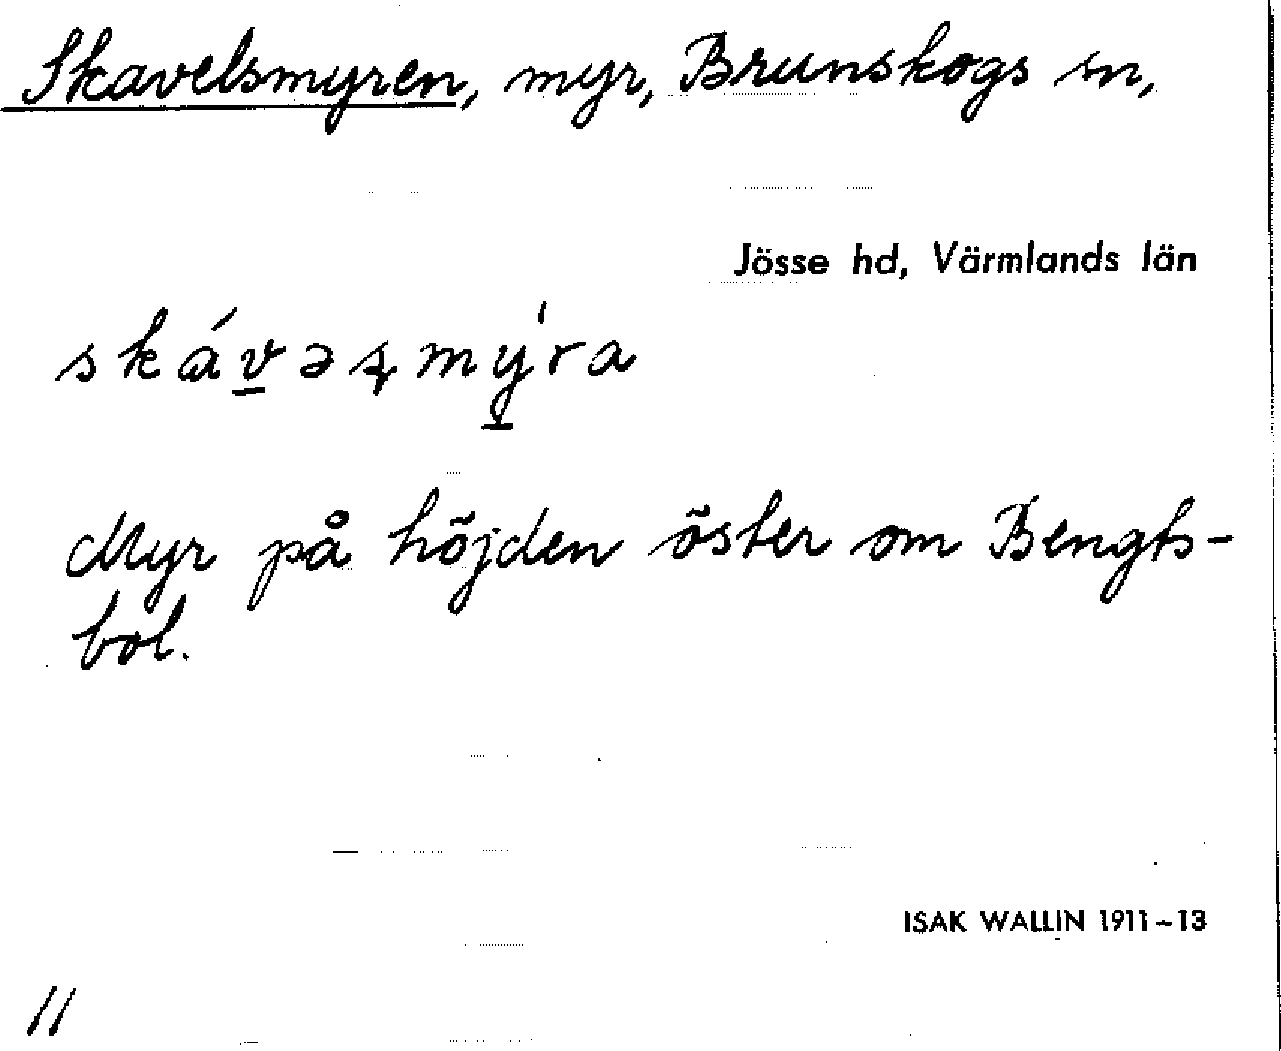 Skavelsmyren, myr, Brunskogs sn,
Jösse hd, Värmlands län
skávəʂmýra
Myr på höjden öster om Bengts-
bol.
ISAK WALLIN 1911–13
11